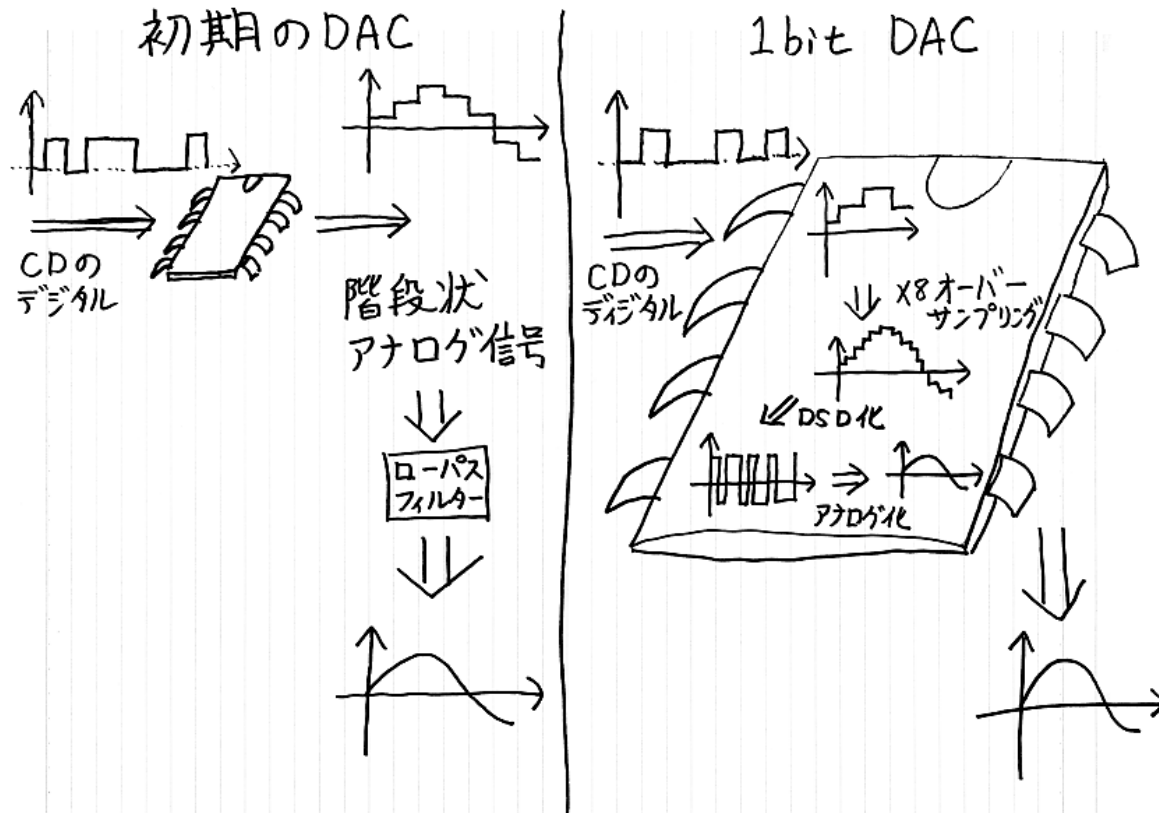 初期のDAC
CDの
デジタル
階段状
アナログ信号
ローパス
フィルター
1bit DAC
CDの
ディジタル
×8オーバー
サンプリング
DSD化
アナログ化